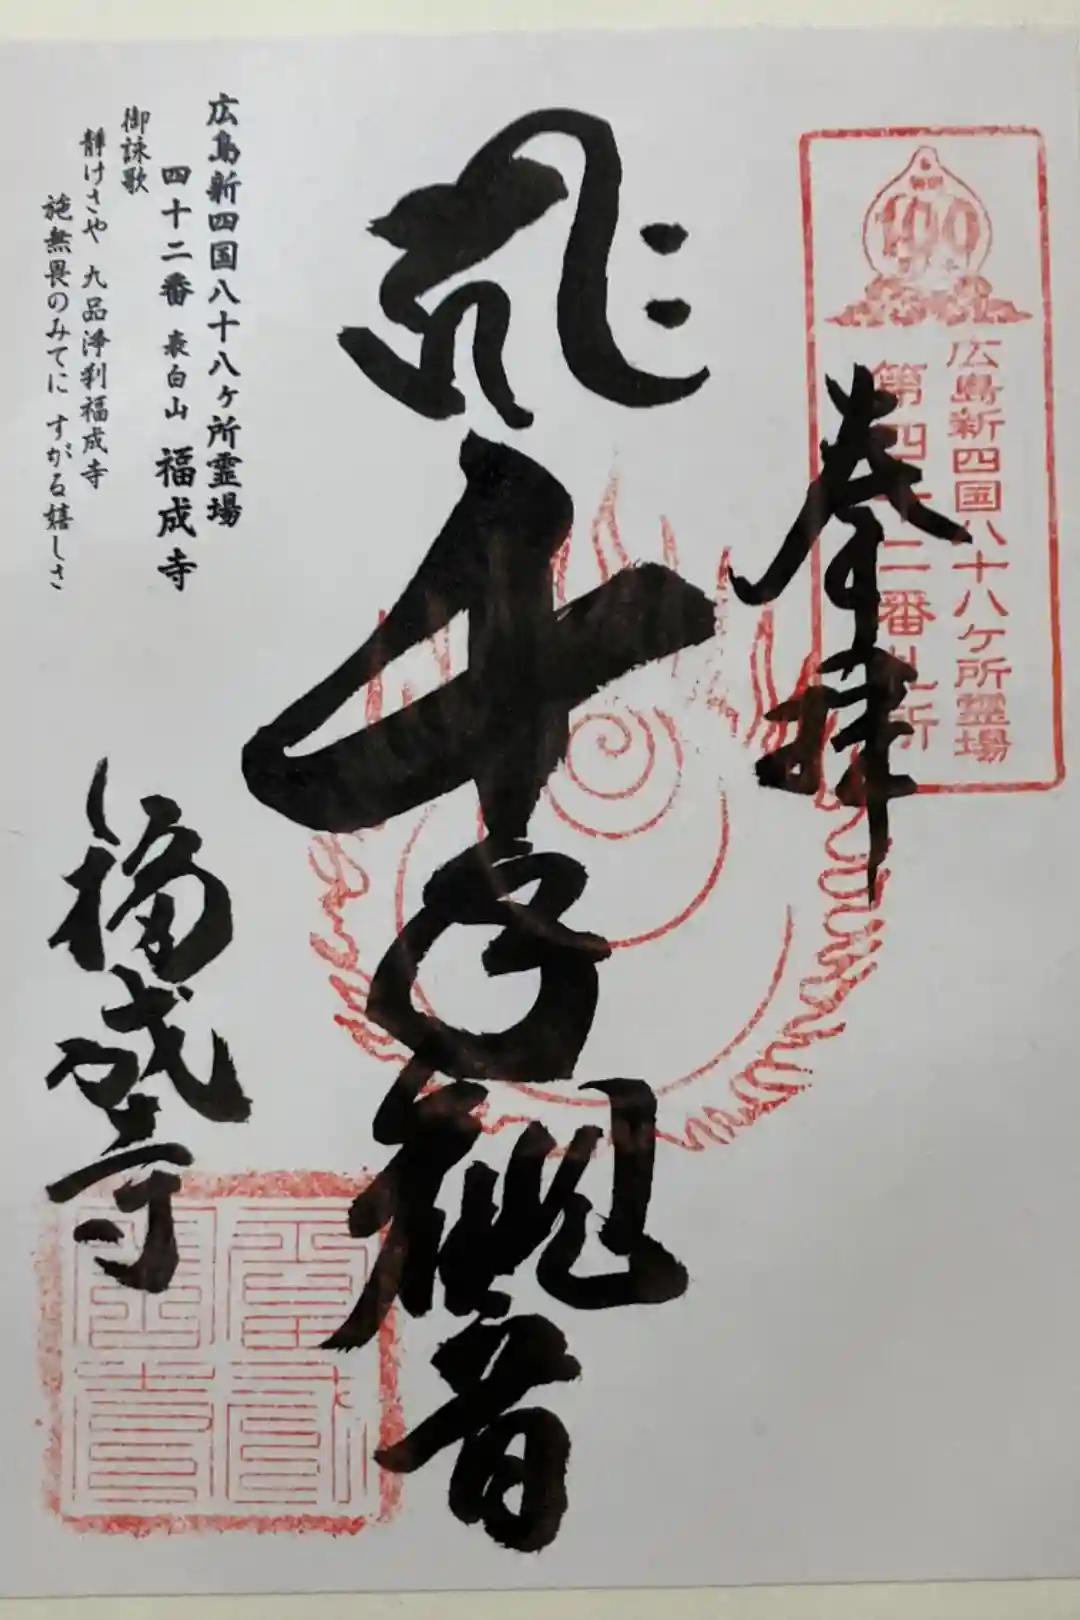 広島新四国八十八ヶ所霊場
第四十二番札所
100
奉拝
千手観音
福成寺
広島新四国八十八ヶ所霊場
四十二番 表白山 福成寺
御詠歌
静けさや 九品浄刹福成寺
施無畏のみてに すがる嬉しさ